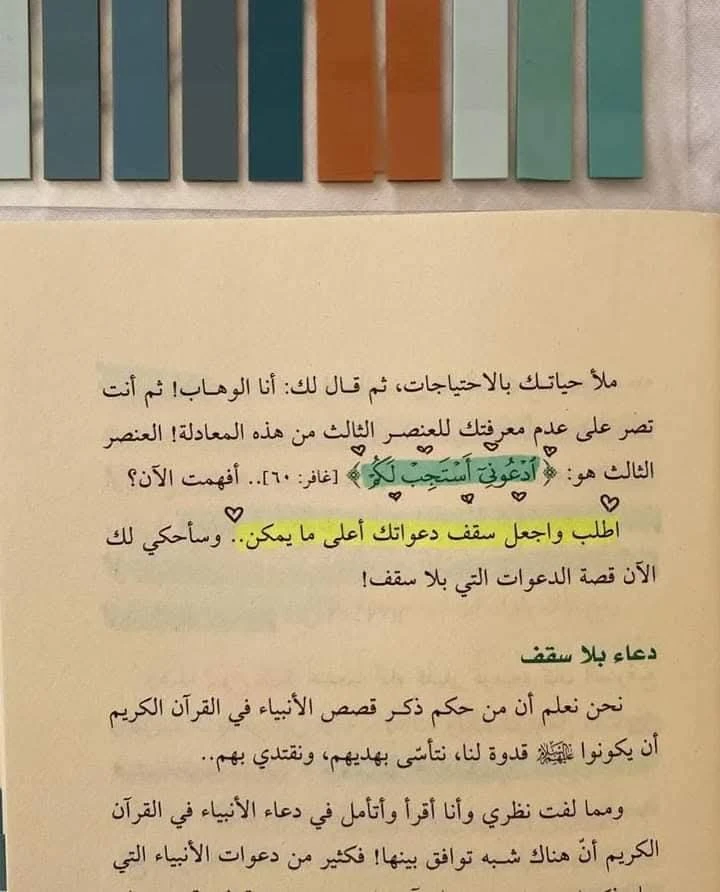 ملأ حياتك بالاحتياجات، ثم قال لك: أنا الوهاب! ثم أنت
تصر على عدم معرفتك للعنصر الثالث من هذه المعادلة! العنصر
الثالث هو: ﴿ٱدْعُونِيٓ أَسْتَجِبْ لَكُمْ﴾ [غافر: ٦٠].. أفهمت الآن؟
اطلب واجعل سقف دعواتك أعلى ما يمكن.. وسأحكي لك
الآن قصة الدعوات التي بلا سقف!
دعاء بلا سقف
نحن نعلم أن من حكم ذكر قصص الأنبياء في القرآن الكريم
أن يكونوا عليهم السلام قدوة لنا، نتأسّى بهديهم، ونقتدي بهم..
ومما لفت نظري وأنا أقرأ وأتأمل في دعاء الأنبياء في القرآن
الكريم أنّ هناك شبه توافق بينها! فكثير من دعوات الأنبياء التي